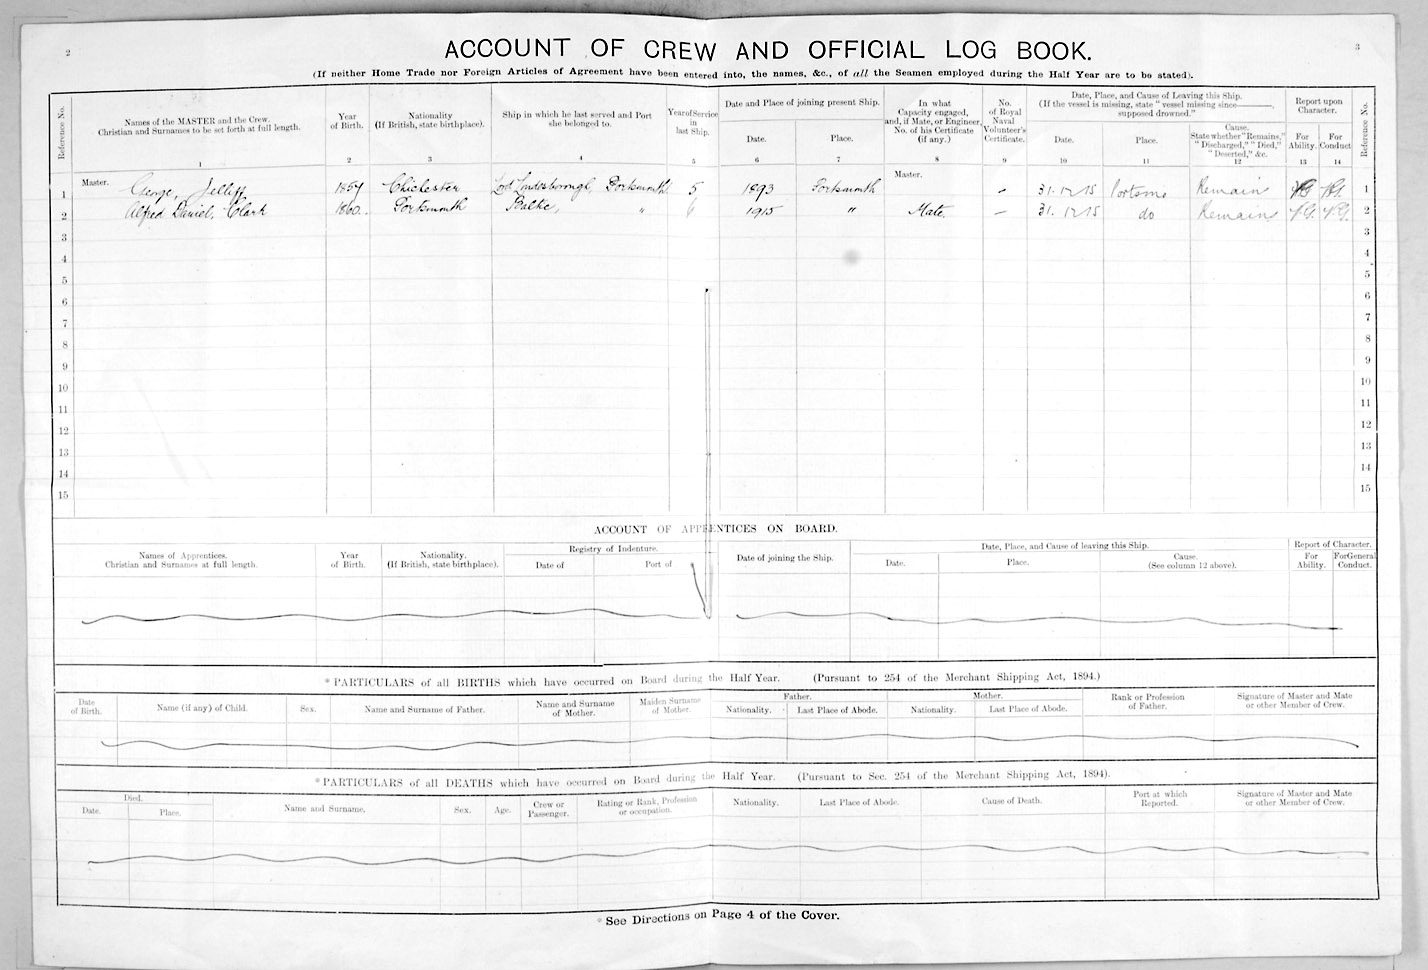 2
3
ACCOUNT OF CREW AND OFFICIAL LOG BOOK.
(If neither Home Trade nor Foreign Articles of Agreement have been entered into, the names, &c., of all the Seamen employed during the Half Year are to be stated).
Reference No.
Names of the MASTER and the Crew.
Christian and Surnames to be set forth at full length.
1
Year
of Birth.
2
Nationality
(If British, state birthplace).
3
Ship in which he last served and Port
she belonged to.
4
Year of Service
in
last Ship.
5
Date and Place of joining present Ship.
Date.
6
Place.
7
In what
Capacity engaged,
and, if Mate, or Engineer,
No. of his Certificate
(if any.)
8
No.
of Royal
Naval
Volunteer's
Certificate.
9
Date, Place, and Cause of Leaving this Ship.
(If the vessel is missing, state "vessel missing since———,
supposed drowned."
Date.
10
Place.
11
Cause.
State whether "Remains,"
"Discharged," "Died,"
"Deserted," &c.
12
Report upon
Character.
For
Ability.
13
For
Conduct
14
Reference No.
1 Master. George, Jelliff 1857 Chichester Lord Londesborough, Portsmouth 5 1893 Portsmouth Master. – 31.12.15 Portsmo Remain V.G. 1
2 Alfred Daniel, Clark 1860. Portsmouth Baltic, " 6 1915 " Mate. – 31.12.15 do Remains V.G. V.G. 2
3 3
4 4
5 5
6 6
7 7
8 8
9 9
10 10
11 11
12 12
13 13
14 14
15 15
ACCOUNT OF APPRENTICES ON BOARD.
Names of Apprentices.
Christian and Surnames at full length.
Year
of Birth.
Nationality.
(If British, state birthplace).
Registry of Indenture.
Date of
Port of
Date of joining the Ship.
Date, Place, and Cause of leaving this Ship.
Date.
Place.
Cause.
(See column 12 above).
Report of Character.
For
Ability.
For General
Conduct.
* PARTICULARS of all BIRTHS which have occurred on Board during the Half Year. (Pursuant to 254 of the Merchant Shipping Act, 1894.)
Date
of Birth.
Name (if any) of Child.
Sex.
Name and Surname of Father.
Name and Surname
of Mother.
Maiden Surname
of Mother.
Father.
Nationality.
Last Place of Abode.
Mother.
Nationality.
Last Place of Abode.
Rank or Profession
of Father.
Signature of Master and Mate
or other Member of Crew.
* PARTICULARS of all DEATHS which have occurred on Board during the Half Year. (Pursuant to Sec. 254 of the Merchant Shipping Act, 1894).
Died.
Date.
Place.
Name and Surname.
Sex.
Age.
Crew or
Passenger.
Rating or Rank, Profession
or occupation.
Nationality.
Last Place of Abode.
Cause of Death.
Port at which
Reported.
Signature of Master and Mate
or other Member of Crew.
* See Directions on Page 4 of the Cover.